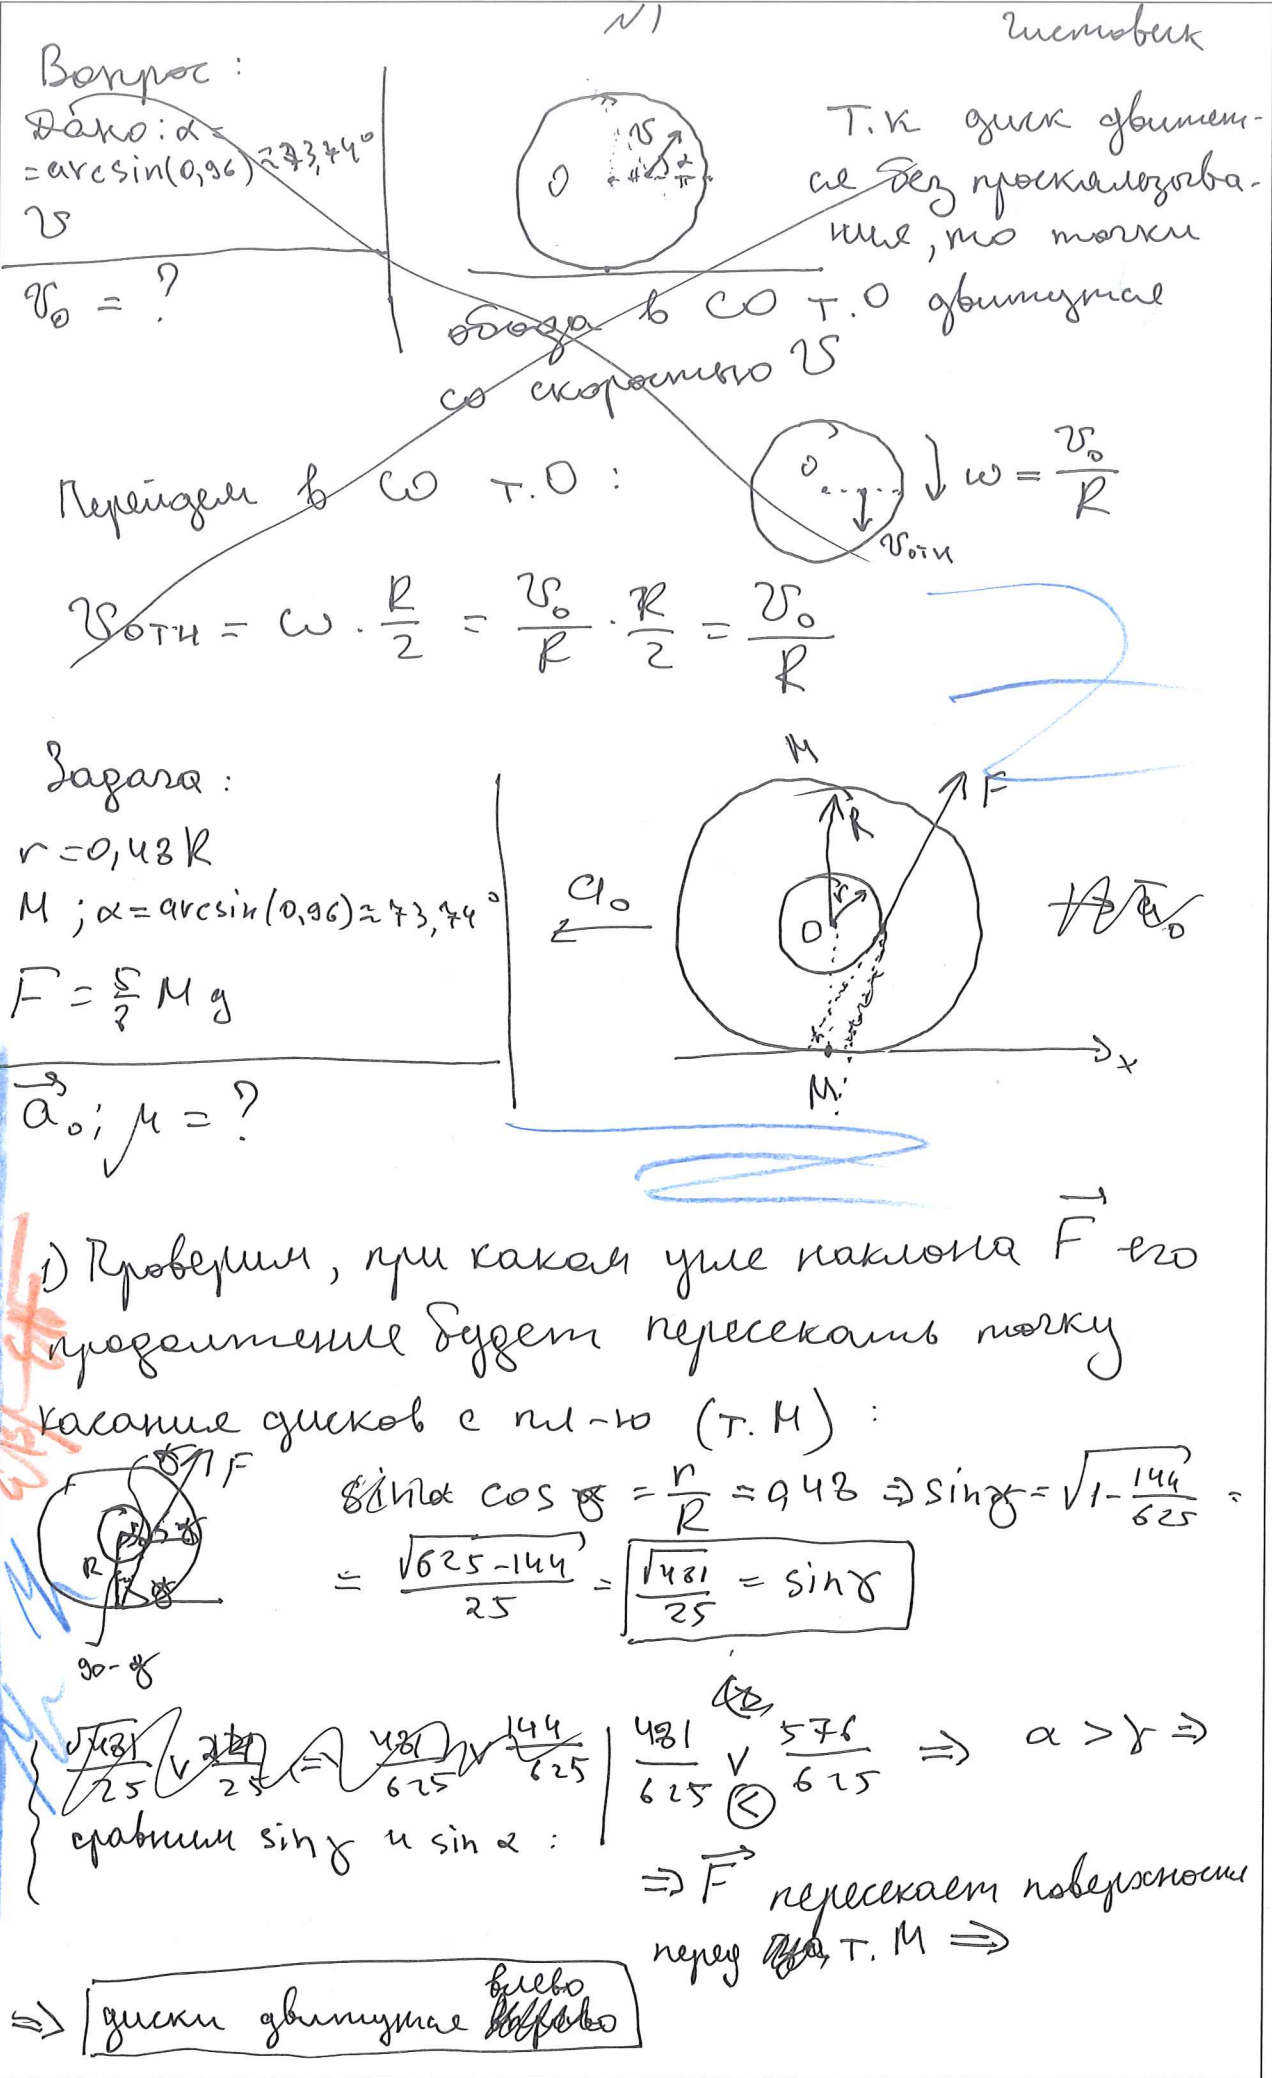 N1
Чистовик
Вопрос:
Дано: α =
= arcsin(0,96) ≈ 73,74°
υ
υ₀ = ?
O
υ
α
Т.к диск движет-
ся без проскальзыва-
ния, то точки
обода в СО т.О движутся
со скоростью υ
Перейдем в СО т.О:
O
υотн
ω = υ₀/R
υотн = ω · R/2 = υ₀/R · R/2 = υ₀/R
Задача:
r = 0,48R
M; α = arcsin(0,96) ≈ 73,74°
F = 5/8 Mg
a⃗₀; μ = ?
a₀
M
R
r
O
F
x
M
1) Проверим, при каком угле наклона F⃗ его
продолжение будет пересекать точку
касания дисков с пл-ю (т. М):
F
R
90-γ
cos γ = r/R = 0,48 ⇒ sinγ = √(1 - 144/625) =
= √(625-144)/25 = √481/25 = sinγ
сравним sin γ и sin α:
481/625 ∨ 576/625 ⇒ α > γ ⇒
<
⇒ F⃗ пересекает поверхность
перед т. М ⇒
⇒ диски движутся влево